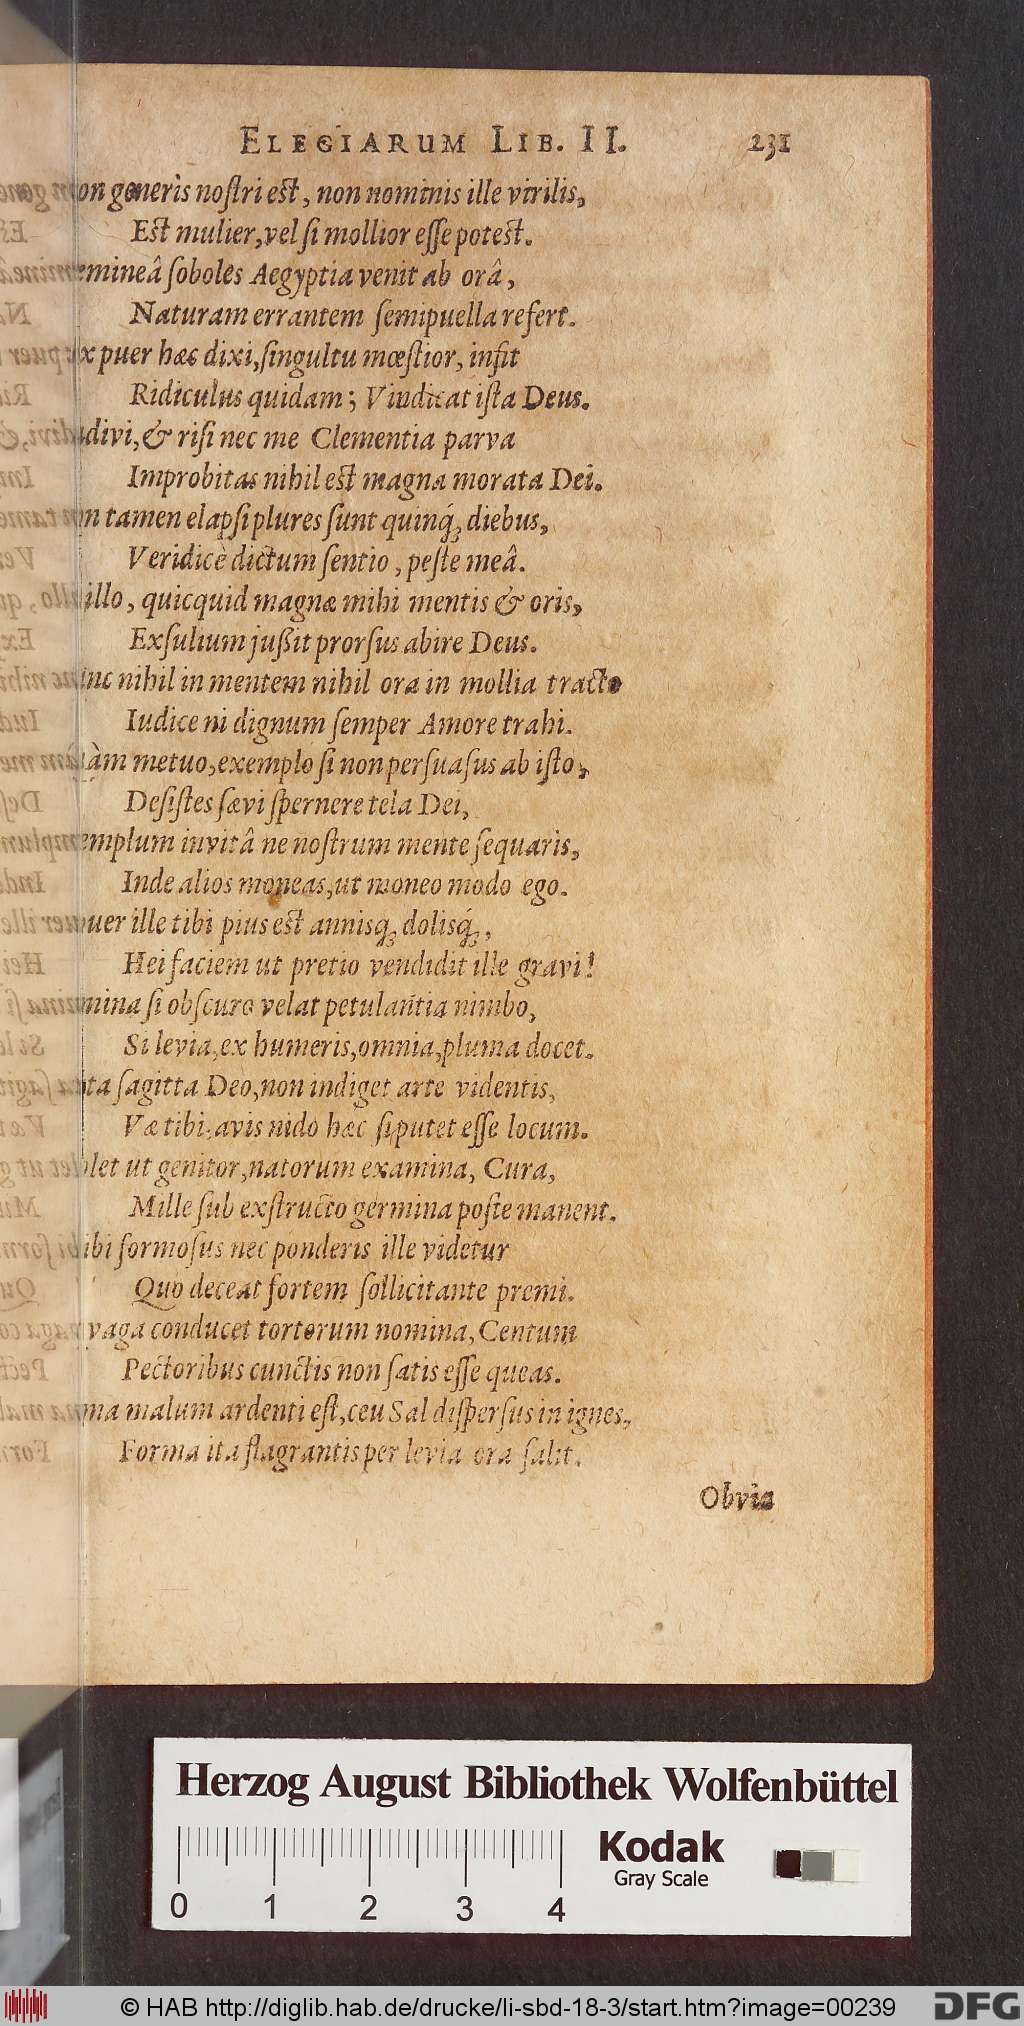 ELEGIARUM LIB. II. 231
on generis nostri est, non nominis ille virilis,
Est mulier, vel si mollior esse potest.
emineâ soboles Aegyptia venit ab orâ,
Naturam errantem semipuella refert.
ix puer hæc dixi, singultu mœstior, infit
Ridiculus quidam; Vindicat ista Deus.
divi, & risi nec me Clementia parva
Improbitas nihil est magna morata Dei.
n tamen elapsi plures sunt quinq́; diebus,
Veridicè dictum sentio, peste meâ.
illo, quicquid magnæ mihi mentis & oris,
Exsulium jußit prorsus abire Deus.
unc nihil in mentem nihil ora in mollia tracto
Iudice ni dignum semper Amore trahi.
àm metuo, exemplo si non persuasus ab isto,
Desistes sævi spernere tela Dei,
emplum invitâ ne nostrum mente sequaris,
Inde alios moneas, ut moneo modo ego.
uer ille tibi pius est annisq; dolisq́;,
Hei faciem ut pretio vendidit ille gravi!
mina si obscuro velat petulantia nimbo,
Si levia, ex humeris, omnia, pluma docet.
ta sagitta Deo, non indiget arte videntis,
Væ tibi, avis nido hæc si putet esse locum.
let ut genitor, natorum examina, Cura,
Mille sub exstructo germina poste manent.
ibi formosus nec ponderis ille videtur
Quo deceat fortem sollicitante premi.
vaga conducet tortorum nomina, Centum
Pectoribus cunctis non satis esse queas.
ma malum ardenti est, ceu Sal dispersus in ignes,
Forma ita flagrantis per levia ora salit.
Obvia
Herzog August Bibliothek Wolfenbüttel
Kodak
Gray Scale
0 1 2 3 4
© HAB http://diglib.hab.de/drucke/li-sbd-18-3/start.htm?image=00239
DFG